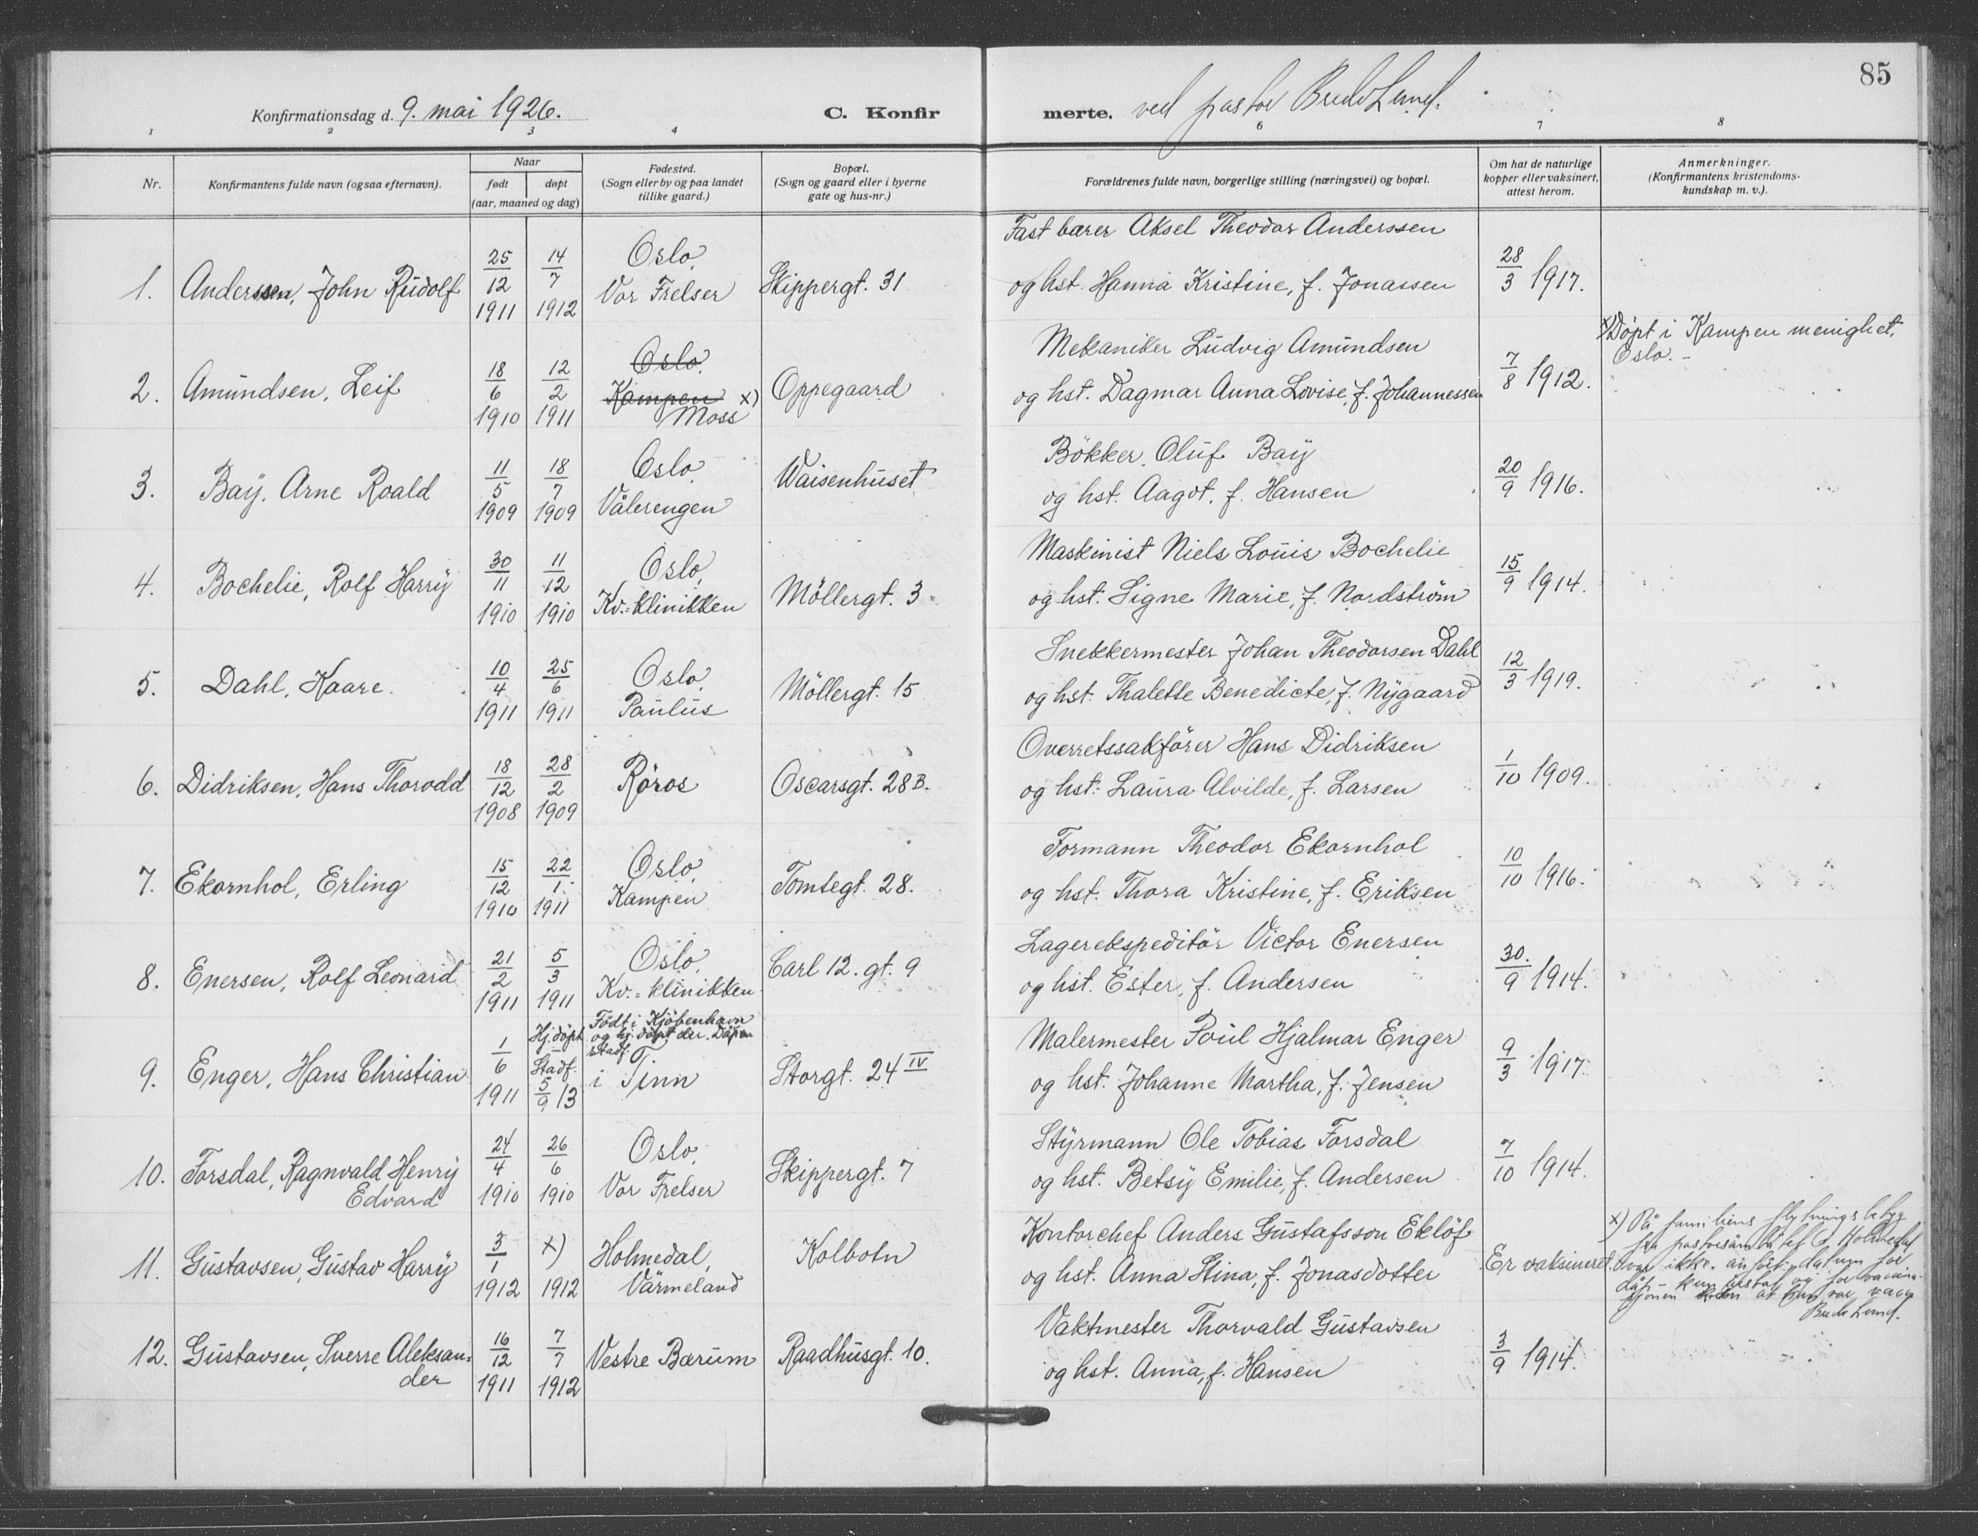 85
Konfirmationsdag d. 9. mai 1926. C. Konfirmerte. ved pastor Bredo Lund.
1 2 3 4 6 7 8
Nr. Konfirmantens fulde navn (ogsaa efternavn). Naar født døpt (aar, maaned og dag) Fødested. (Sogn eller by og paa landet tillike gaard.) Bopæl. (Sogn og gaard eller i byerne gate og hus-nr.) Forældrenes fulde navn, borgerlige stilling (næringsvei) og bopæl. Om hat de naturlige kopper eller vaksinert, attest herom. Anmerkninger. (Konfirmantens kristendomskundskap m. v.).
1. Anderssen, John Rudolf 25/12 1911 14/7 1912 Oslo, Vor Frelser Skippergt. 31 Fast bærer Aksel Theodor Anderssen
og hst. Hanna Kristine, f. Jonassen 28/3 1917.
2. Amundsen, Leif 18/6 1910 12/2 1911 Oslo, Kampen x) Moss Oppegaard Mekaniker Ludvig Amundsen
og hst. Dagmar Anna Lovise, f. Johannessen 7/8 1912. x) Döpt i Kampen menighet, Oslo. -
3. Bay, Arne Roald 11/5 1909 18/7 1909 Oslo, Vålerengen Waisenhuset Bökker Oluf Bay
og hst. Aagot, f. Hansen 20/9 1916.
4. Bochelie, Rolf Harry 30/11 1910 11/12 1910 Oslo, Kv.=klinikken Möllergt. 3. Maskinist Niels Louis Bochelie
og hst. Signe Marie, f. Nordström 15/9 1914.
5. Dahl, Kaare. 10/4 1911 25/6 1911 Oslo, Paulus Möllergt. 15 Snekkermester Johan Theodorsen Dahl
og hst. Thalette Benedicte, f. Nygaard 12/3 1919.
6. Didriksen, Hans Thorodd 18/12 1908 28/2 1909 Röros Oscarsgt. 28 B. Overretssakförer Hans Didriksen
og hst. Laura Alvilde, f. Larsen 1/10 1909.
7. Ekornhol, Erling 15/12 1910 22/1 1911 Oslo, Kampen Tomtegt. 28. Formann Theodor Ekornhol
og hst. Thora Kristine, f. Eriksen 10/10 1916.
8. Enersen, Rolf Leonard 21/2 1911 5/3 1911 Oslo, Kv.=klinikken Carl 12. gt. 9 Lagerekspeditör Victor Enersen
og hst. Ester, f. Andersen 30./9 1914.
9. Enger, Hans Christian 1/6 1911 Hj.döpt Stadf. 5/9 13 Födt i Kjöbenhavn og hj. döpt der. Dåpen stadf. i Tinn Storgt. 24 IV Malermester Poul Hjalmar Enger
og hst. Johanne Martha, f. Jensen 9/3 1917.
10. Forsdal, Ragnvald Henry Edvard 24/4 1910 26/6 1910 Oslo, Vor Frelser Skippergt. 7 Styrmann Ole Tobias Forsdal
og hst. Betsy Emilie, f. Andersen 7/10 1914.
11. Gustavsen, Gustav Harry 3/1 1912 x) 1912 Holmedal, Värmeland Kolbotn Kontorchef Anders Gustafsson Eklöf
og hst. Anna Stina, f. Jonasdotter Er vaksineret. x) På familiens flytningsbetyg
fra pastorsämbetet i Holmedal
var ikke anfört datum for
dåp - kun årstal og for vaccina-
sjonen at han var vacc.
Bredo Lund.
12. Gustavsen, Sverre Aleksander 16/12 1911 7/7 1912 Vestre Bærum Raadhusgt. 10. Vaktmester Thorvald Gustavsen
og hst. Anna, f. Hansen 3/9 1914.